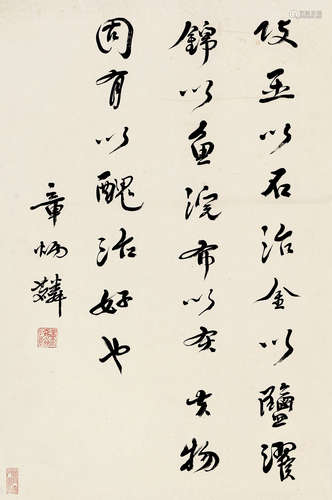 攻玉以石治金以鹽濯
錦以魚浣布以灰夫物
固有以醜治好也
章炳麟